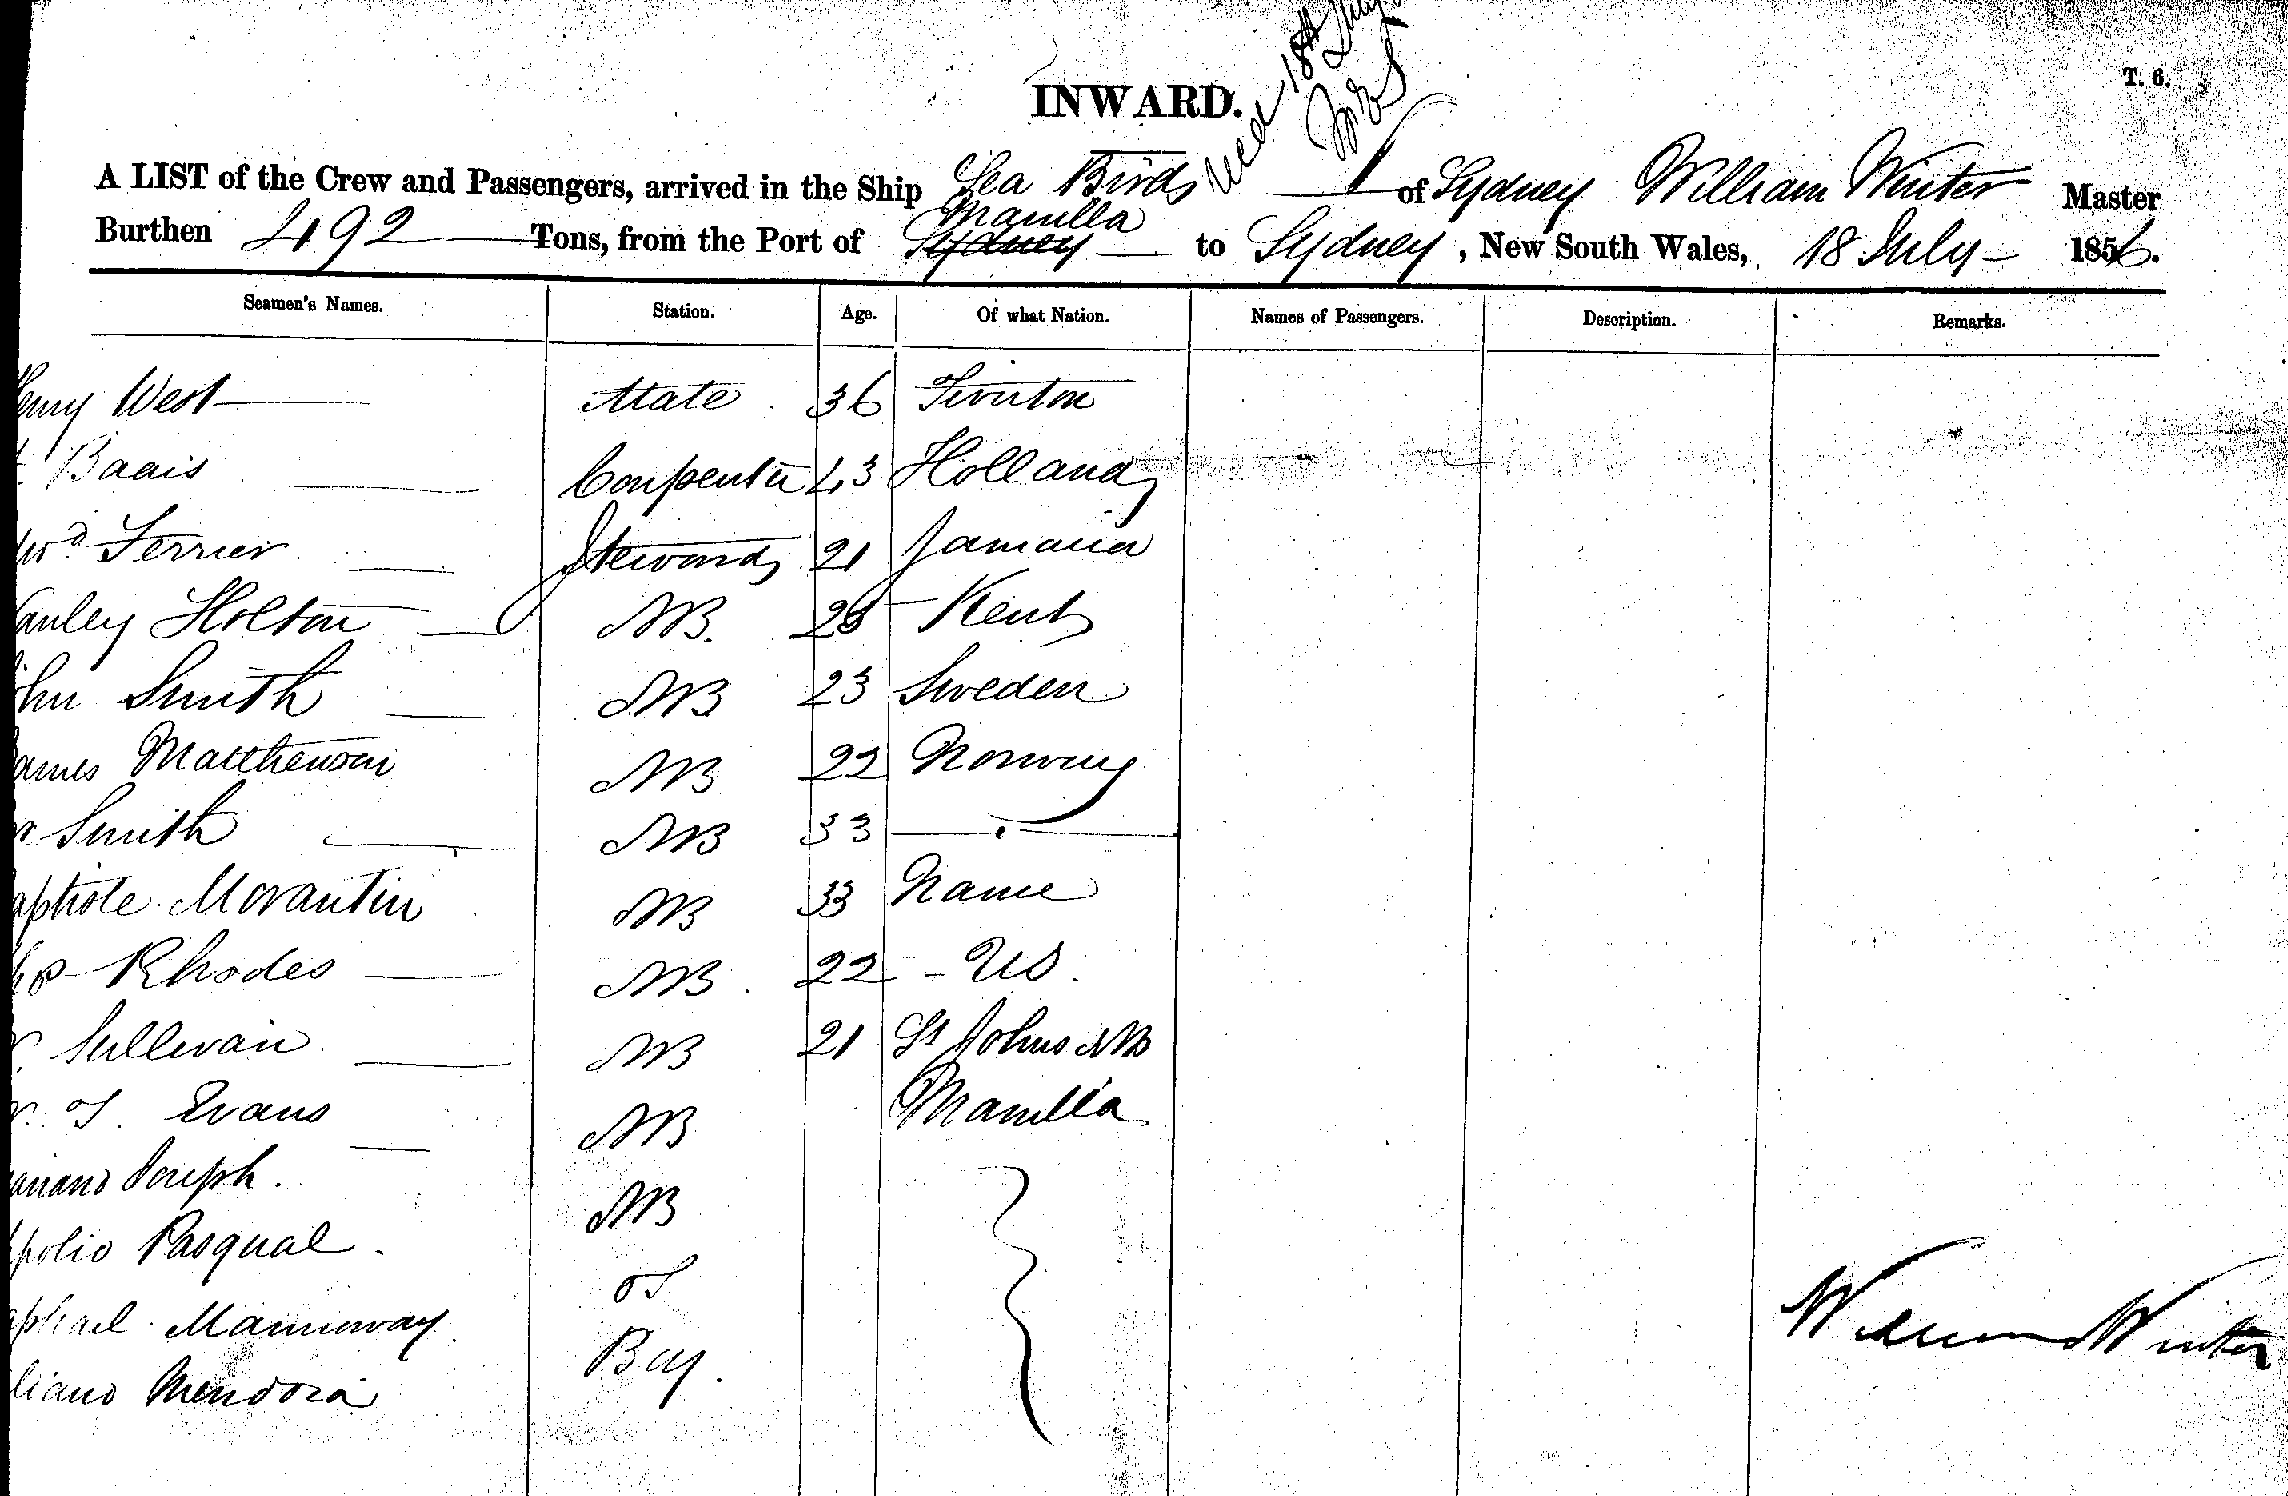 T. 6.
INWARD.
18th July
A LIST of the Crew and Passengers, arrived in the Ship Sea Bird of Sydney William Winter Master
Burthen 492 Tons, from the Port of Sydney Manilla to Sydney, New South Wales, 18 July 1856.
Seamen's Names. Station. Age. Of what Nation. Names of Passengers. Description. Remarks.
enry West Mate 36
Baais Carpenter 43 Holland
Ferrier Steward 21 Jamaica
anley Holton AB. Kent
ohn Smith AB 23 Sweden
ames Matthewson AB 22 Norway
Smith AB 33
aptiste Morantin AB 33
Rhodes AB. 22 US.
Sullivan AB 21 St Johns NB
Evans AB Manilla
Joseph. AB
polio Pasqual. OS
aphael Mannoway Boy.
liano Mendoza
William Winter